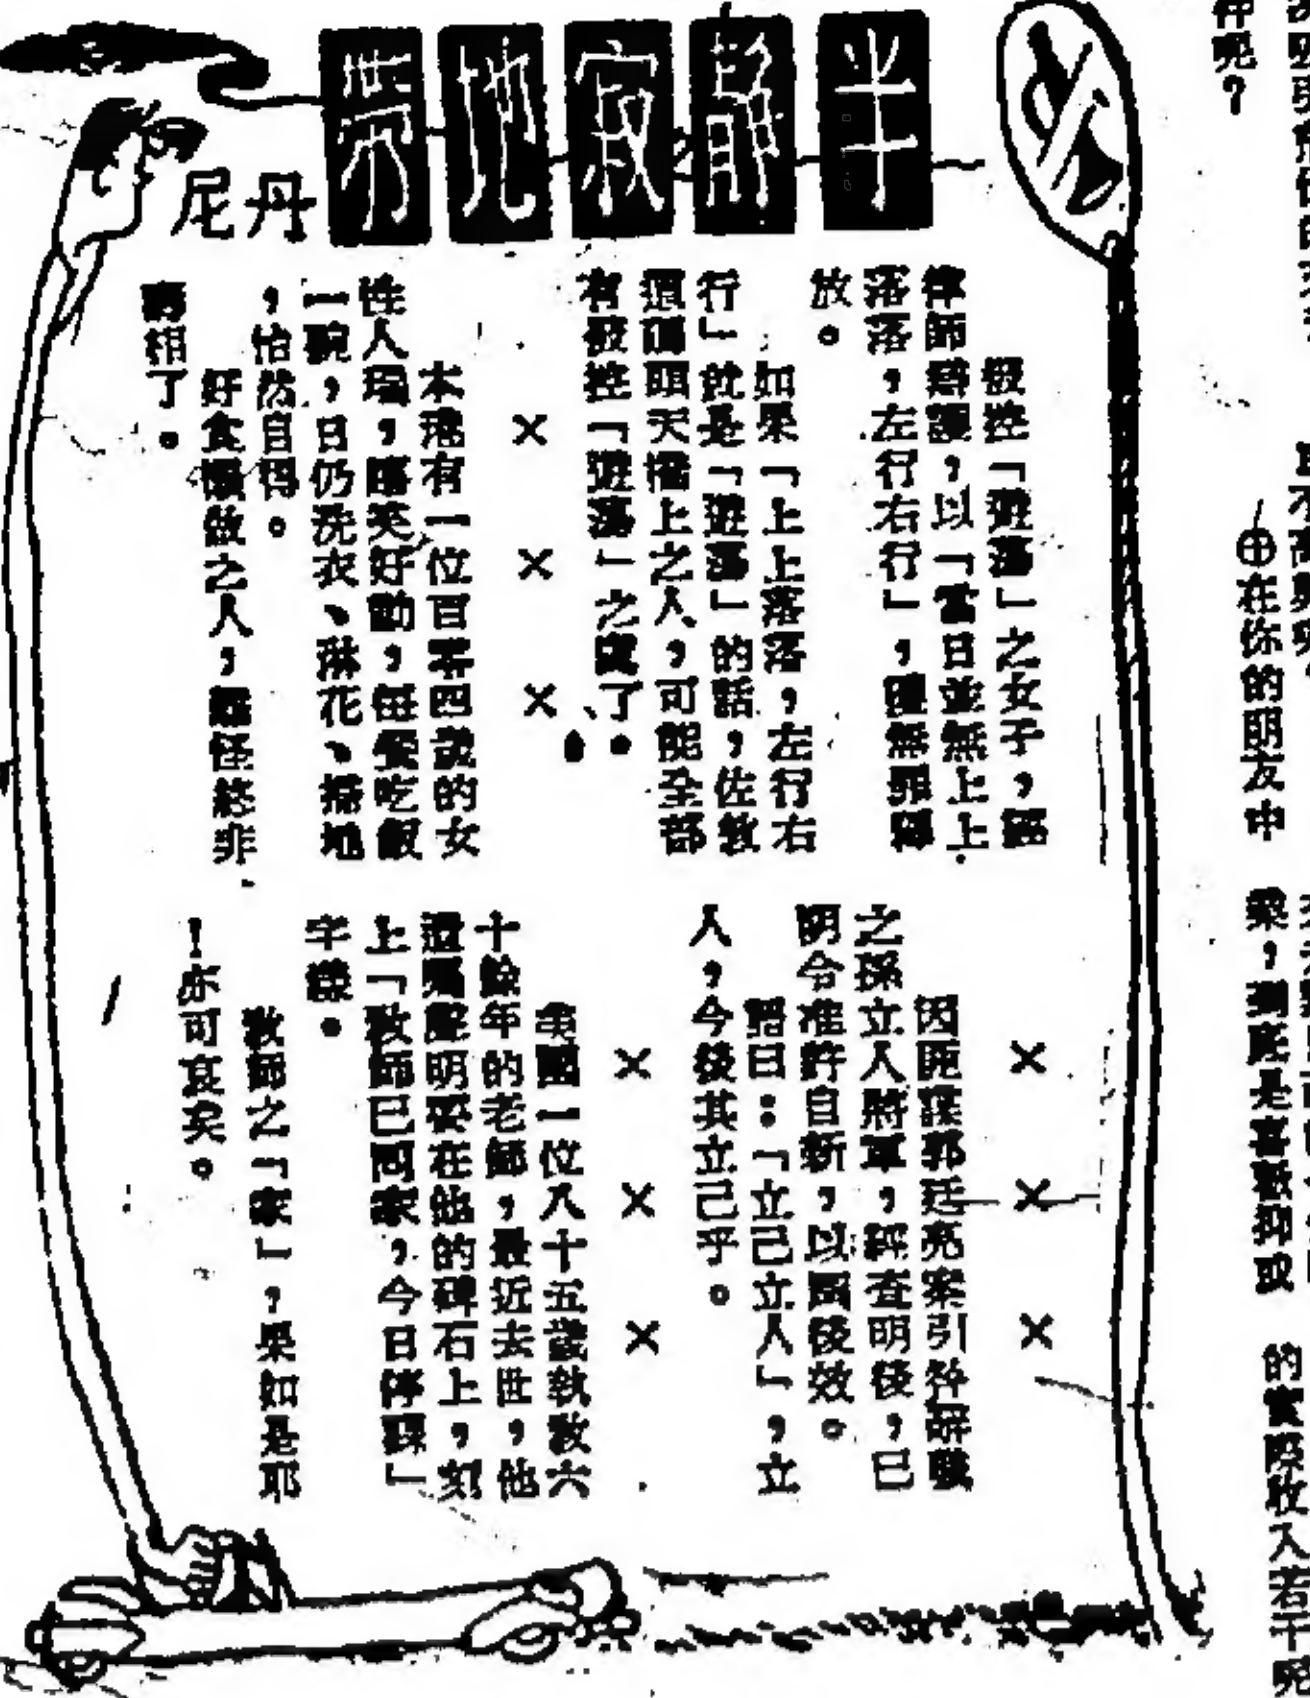 半靜寂地帶
丹尼
被控「遊蕩」之女子,經
律師辯護,以「當日並無上上
落落,左行右行」,獲無罪釋
放。
如果「上上落落,左行右
行」就是「遊蕩」的話,佐敦
道碼頭天橋上之人,可能全部
有被控「遊蕩」之虞了。
× × ×
本港有一位百零四歲的女
性人瑞,嘻笑好動,每餐吃飯
一碗,日仍洗衣、淋花、掃地
,怡然自得。
好食懶做之人,難怪終非
壽相了。
× × ×
因匪諜郭廷亮案引咎辭職
之孫立人將軍,經查明後,已
明令准許自新,以圖後效。
語曰:「立己立人」,立
人,今後其立己乎。
× × ×
美國一位八十五歲執教六
十餘年的老師,最近去世,他
遺囑聲明要在他的碑石上,刻
上「教師已回家,今日停課」
字樣。
教師之「家」,果如是耶
!亦可哀矣。
種呢?
㊉在你的朋友中
業,到底是喜歡抑或
的實際收入若干呢